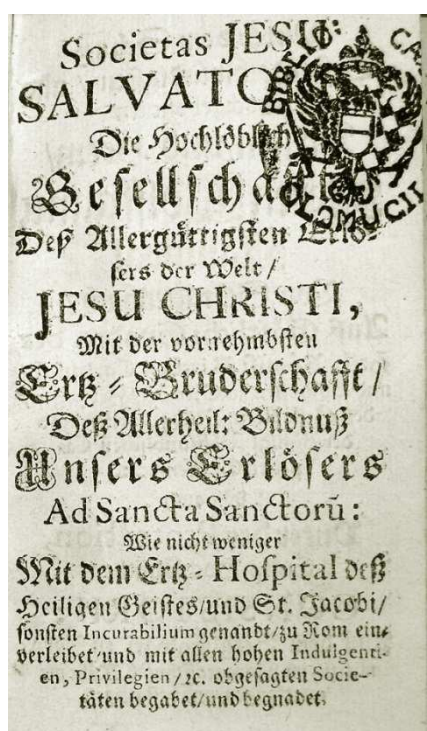 Societas JESU:
SALVATO
Die Hochlöblich
Gesellschafft
Deß Allergüttigsten Erlö-
sers der Welt/
JESU CHRISTI,
Mit der vornehmbsten
Ertz-Bruderschafft/
Deß Allerheil: Bildnuß
Unsers Erlösers
Ad Sancta Sanctorū:
Wie nicht weniger
Mit dem Ertz-Hospital deß
Heiligen Geistes/und St. Jacobi/
sonsten Incurabilium genandt/zu Rom ein-
verleibet/und mit allen hohen Indulgenti-
en, Privilegien/ꝛc. obgesagten Socie-
täten begabet/und begnadet.
BIBLIO: CÆ
OLOMUCII